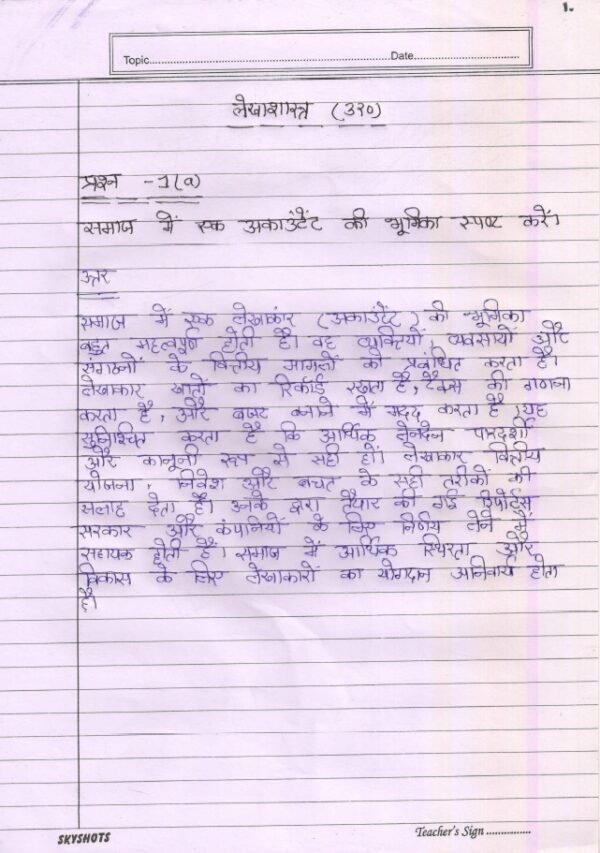 1.
Topic........................ Date........................
लेखाशास्त्र (320)
प्रश्न -1(a)
समाज में एक अकाउंटेंट की भूमिका स्पष्ट करें।
उत्तर
समाज में एक लेखाकार (अकाउंटेंट) की भूमिका
बहुत महत्वपूर्ण होती है। वह व्यक्तियों, व्यवसायों और
संगठनों के वित्तीय मामलों को प्रबंधित करता है।
लेखाकार खातों का रिकॉर्ड रखता है, टैक्स की गणना
करता है, और बजट बनाने में मदद करता है। यह
सुनिश्चित करता है कि आर्थिक लेनदेन पारदर्शी
और कानूनी रूप से सही हों। लेखाकार वित्तीय
योजना, निवेश और बचत के सही तरीकों की
सलाह देता है। उनके द्वारा तैयार की गई रिपोर्ट्स
सरकार और कंपनियों के लिए निर्णय लेने में
सहायक होती है। समाज में आर्थिक स्थिरता और
विकास के लिए लेखाकारों का योगदान अनिवार्य होता
है।
SKYSHOTS Teacher's Sign ...............